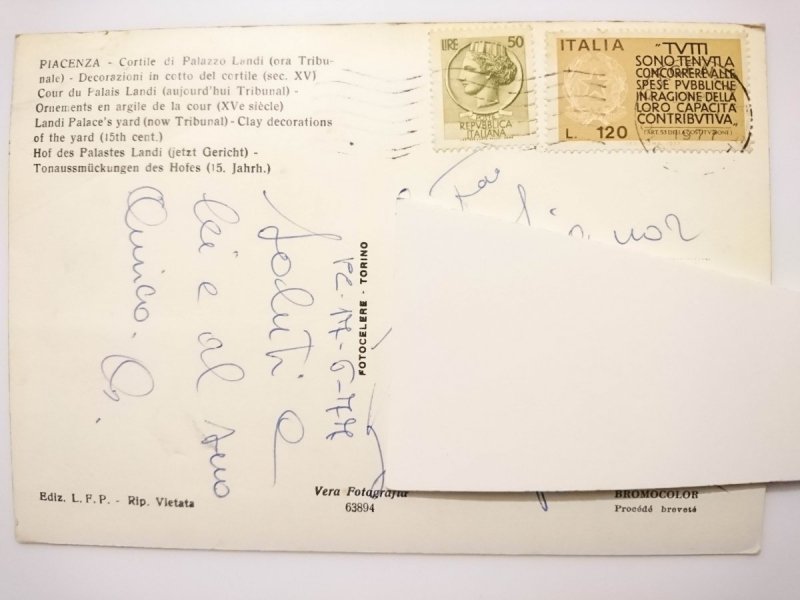 PIACENZA - Cortile di Palazzo Landi (ora Tribu-
nale) - Decorazioni in cotto del cortile (sec. XV)
Cour du Falais Landi (aujourd'hui Tribunal) -
Ornements en argile de la cour (XVe siècle)
Landi Palace's yard (now Tribunal) - Clay decorations
of the yard (15th cent.)
Hof des Palastes Landi (jetzt Gericht) -
Tonaussmückungen des Hofes (15. Jahrh.)
LIRE 50
REPVBBLICA
ITALIANA
ITALIA
"TVTTI
SONO TENVTI A
CONCORRERE ALLE
SPESE PVBBLICHE
IN RAGIONE DELLA
LORO CAPACITÀ
CONTRIBVTIVA"
(ART. 53 DELLA COSTITUZIONE)
L. 120
FOTOCELERE - TORINO
Saluti a
lei e al suo
Ediz. L. F. P. - Rip. Vietata
Vera Fotografia
63894
BROMOCOLOR
Procédé breveté